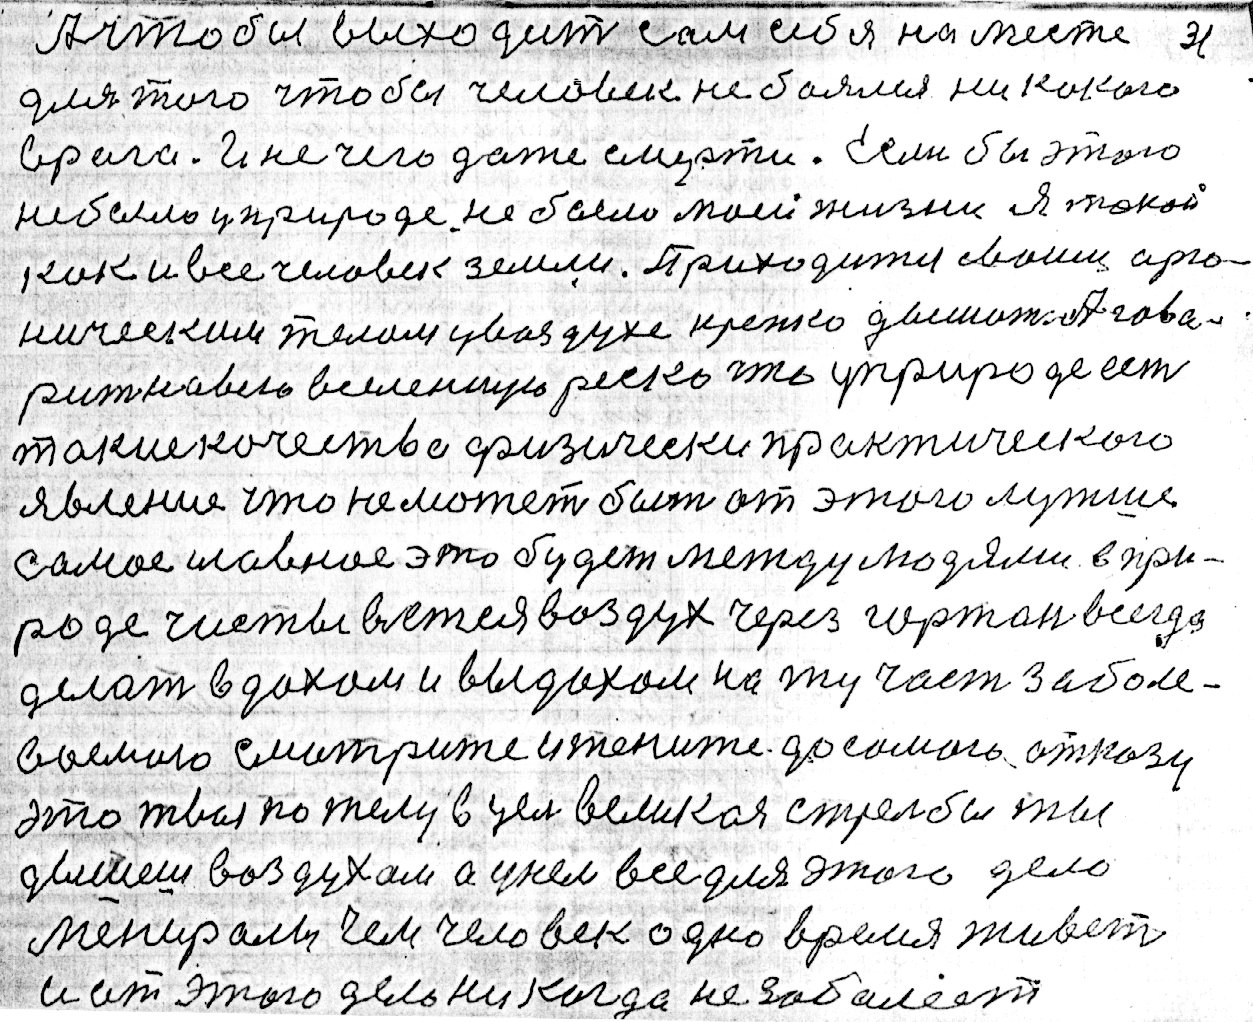 А чтобы выходит сам себя на месте 31
для того чтобы человек не боялся никокого
врага. И не чего даже смерти. Если бы этого
небыло у природе. не было моей жизни Я такой
как и все человек земли. Приходится своим арга-
ническим телом у воздухе крепко дышат. А гова-
рит на всю вселенную реско что у природе ест
такие качества физически практического
явление что не может быт от этого лутше
самое главное это будет между людями в при-
роде чисты вется воздух через гортан всегда
делат вдохом и выдохом на ту част заболе-
ваемого смотрите и тените до самого отказу
это твая по телу в цел великая стрелбы ты
дышеш воздухам а у нем все для этого дело
Менералы Чем человек одно время живет
и от этого дела никогда не заболеет